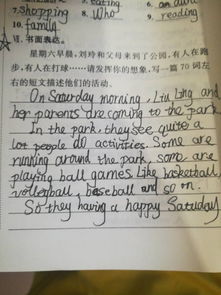 7. shopping 8. Who 9. reading
10. family
Ⅵ. 书面表达。
星期六早晨,刘玲和父母来到了公园,有人在跑
步,有人在打球……请发挥你的想象,写一篇 70 词左
右的短文描述他们的活动。
On Saturday morning, Liu Ling and
her parents are coming to the park
In the park, they see quite a
lot people do activities. Some are
running around the park, some are
playing ball games. Like basketball,
volleyball, baseball and so on.
So they having a happy Satuday